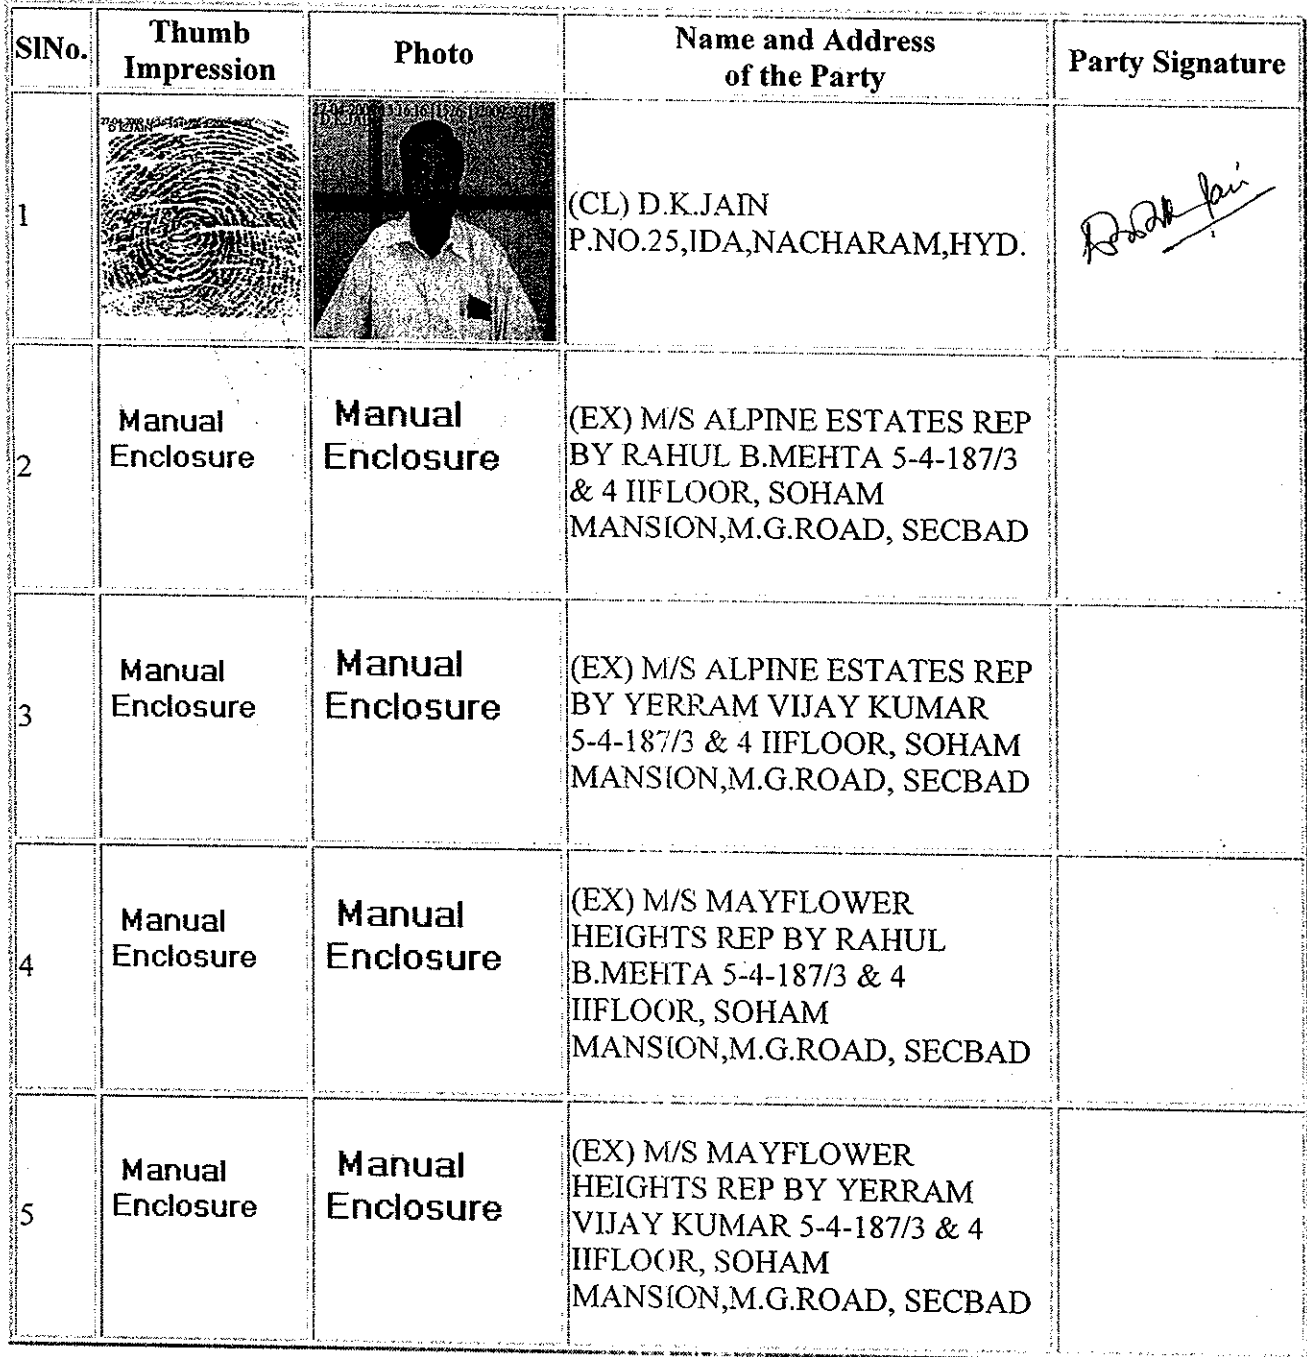 SlNo.
Thumb
Impression
Photo
Name and Address
of the Party
Party Signature
1
D.K.JAIN
(CL) D.K.JAIN
P.NO.25,IDA,NACHARAM,HYD.
2
Manual
Enclosure
Manual
Enclosure
(EX) M/S ALPINE ESTATES REP
BY RAHUL B.MEHTA 5-4-187/3
& 4 IIFLOOR, SOHAM
MANSION,M.G.ROAD, SECBAD
3
Manual
Enclosure
Manual
Enclosure
(EX) M/S ALPINE ESTATES REP
BY YERRAM VIJAY KUMAR
5-4-187/3 & 4 IIFLOOR, SOHAM
MANSION,M.G.ROAD, SECBAD
4
Manual
Enclosure
Manual
Enclosure
(EX) M/S MAYFLOWER
HEIGHTS REP BY RAHUL
B.MEHTA 5-4-187/3 & 4
IIFLOOR, SOHAM
MANSION,M.G.ROAD, SECBAD
5
Manual
Enclosure
Manual
Enclosure
(EX) M/S MAYFLOWER
HEIGHTS REP BY YERRAM
VIJAY KUMAR 5-4-187/3 & 4
IIFLOOR, SOHAM
MANSION,M.G.ROAD, SECBAD